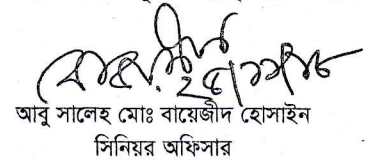 আবু সালেহ মোঃ বায়েজীদ হোসাইন
সিনিয়র অফিসার